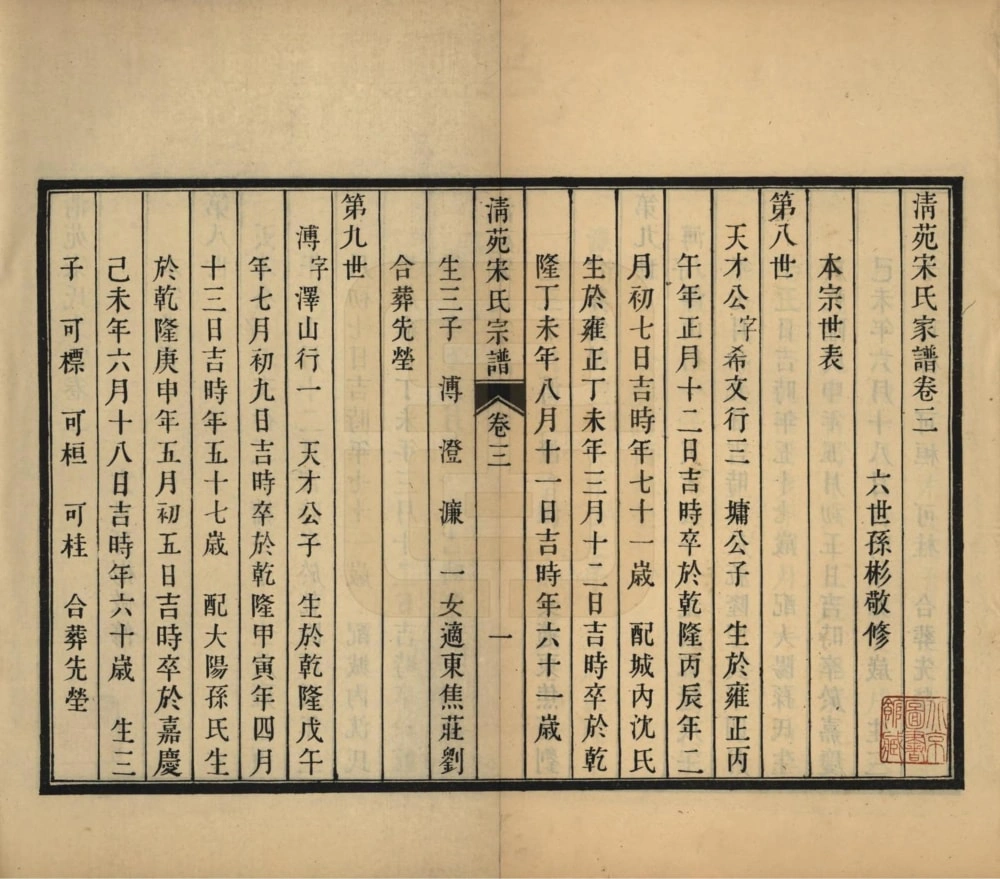 清苑宋氏家譜卷三
六世孫彬敬修
本宗世表
第八世
天才公字希文行三 墉公子 生於雍正丙
午年正月十二日吉時卒於乾隆丙辰年二
月初七日吉時年七十一歲 配城內沈氏
生於雍正丁未年三月十二日吉時卒於乾
隆丁未年八月十一日吉時年六十一歲
清苑宋氏宗譜 卷三 一
生三子 溥 澄 濂 一女適東焦莊劉
合葬先塋
第九世
溥字澤山行一 天才公子 生於乾隆戊午
年七月初九日吉時卒於乾隆甲寅年四月
十三日吉時年五十七歲 配大陽孫氏生
於乾隆庚申年五月初五日吉時卒於嘉慶
己未年六月十八日吉時年六十歲 生三
子 可標 可桓 可桂 合葬先塋
北京圖書館藏